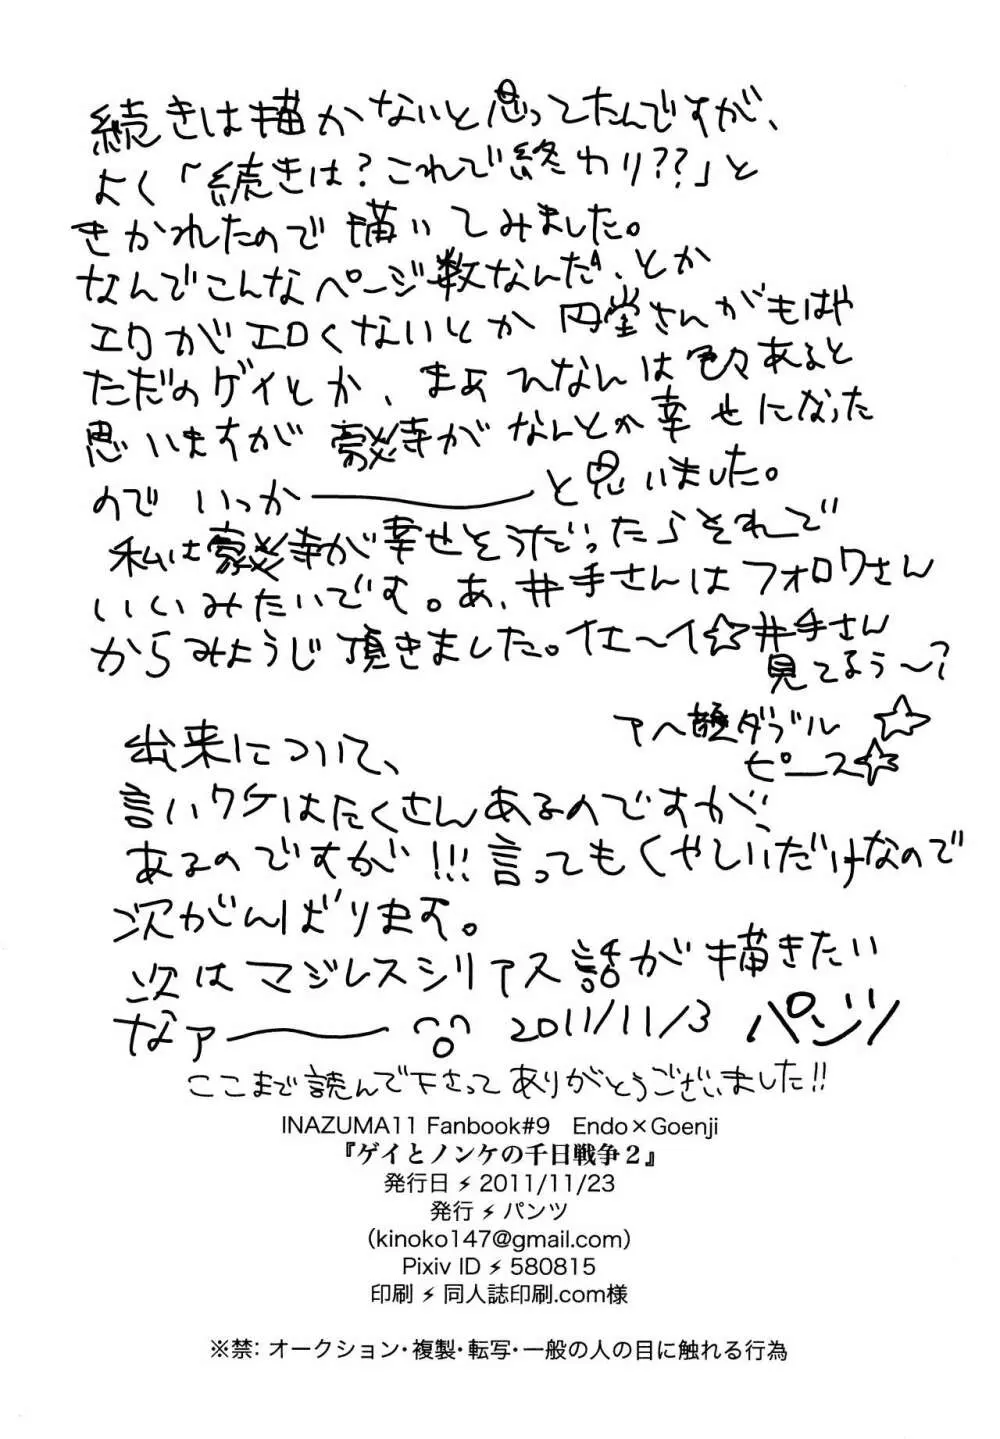 続きは描かないと思ってたんですが、
よく「続きは？これで終わり??」と
きかれたので描いてみました。
なんでこんなページ数なんだ、とか
エロがエロくないとか円堂さんがもはや
ただのゲイとか、まぁみなんは色々あると
思いますが豪炎寺がなんとか幸せになった
のでいっかーーと思いました。
私は豪炎寺が幸せそうだったらそれで
いいみたいです。あ、井手さんはフォロワさん
からみょうじ頂きました。イエ〜イ☆井手さん
見てるぅ〜?
アヘ顔ダブル☆
ピース☆
出来について、
言いワケはたくさんあるのですが、
あるのですが!!!言ってもくやしいだけなので
次がんばります。
次はマジレスシリアス話が描きたい
なァーー 2011/11/3 パンツ
ここまで読んで下さってありがとうございました!!
INAZUMA11 Fanbook#9　Endo×Goenji
『ゲイとノンケの千日戦争２』
発行日⚡2011/11/23
発行⚡パンツ
（kinoko147@gmail.com）
Pixiv ID⚡580815
印刷⚡同人誌印刷.com様
※禁：オークション・複製・転写・一般の人の目に触れる行為